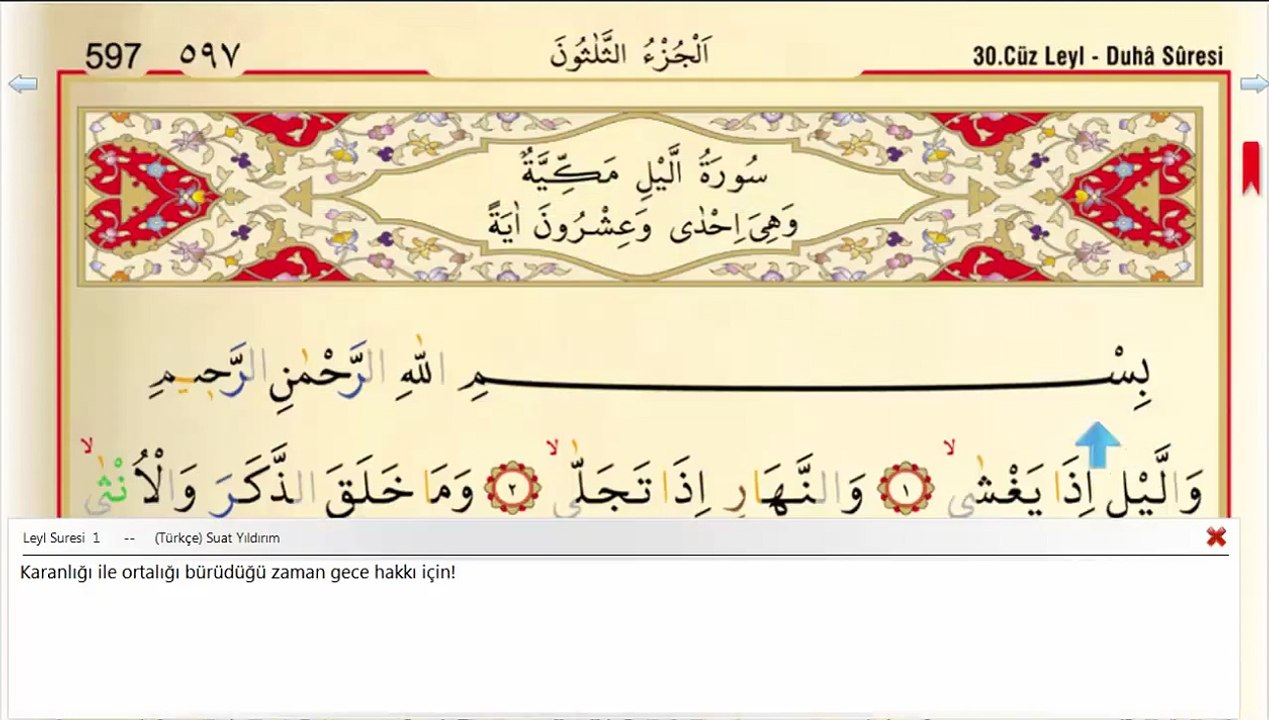 597 ٥٩٧ اَلْجُزْءُ الثَّلٰثُونَ 30.Cüz Leyl - Duhâ Sûresi
سُورَةُ الَّيْلِ مَكِّيَّةٌ
وَهِىَ اِحْدٰى وَعِشْرُونَ اٰيَةً
بِسْمِ اللّٰهِ الرَّحْمٰنِ الرَّحٖيمِ
وَالَّيْلِ اِذَا يَغْشٰىۙ ١ وَالنَّهَارِ اِذَا تَجَلّٰىۙ ٢ وَمَا خَلَقَ الذَّكَرَ وَالْاُنْثٰىۙ
Leyl Suresi 1 -- (Türkçe) Suat Yıldırım
Karanlığı ile ortalığı bürüdüğü zaman gece hakkı için!